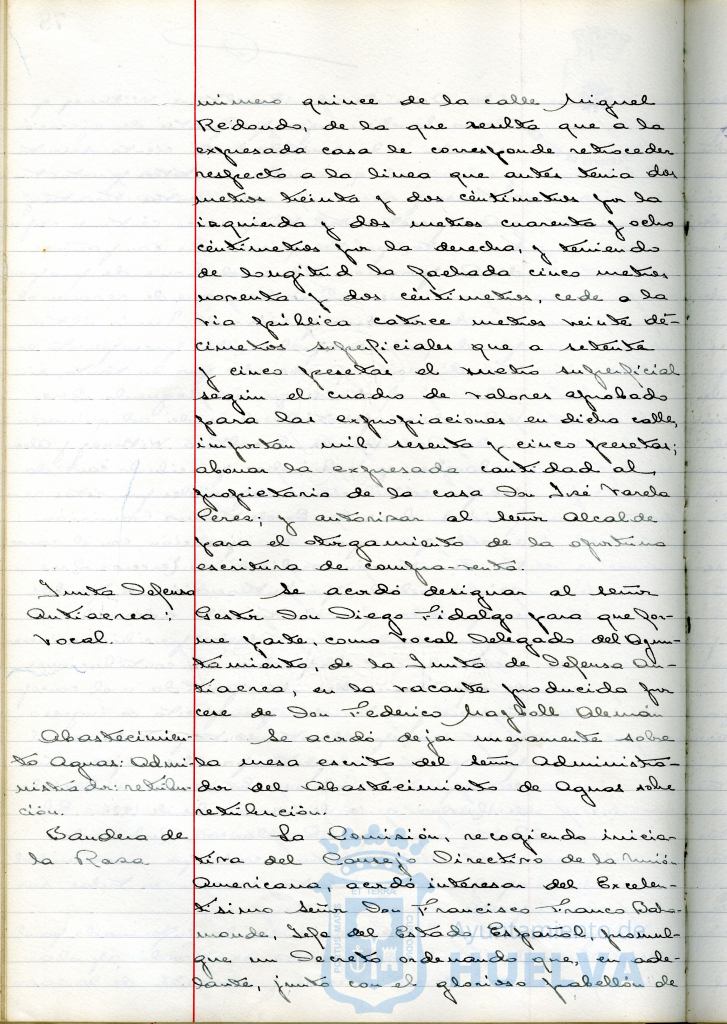 número quince de la calle Miguel
Redondo, de la que resulta que a la
expresada casa le corresponde retroceder
respecto a la linea que antes tenia dos
metros treinta y dos céntimetros por la
izquierda y dos metros cuarenta y ocho
céntimetros por la derecha, y teniendo
de longitud la fachada cinco metros
noventa y dos céntimetros, cede a la
via pública catorce metros veinte dé-
cimetros superficiales que a setenta
y cinco pesetas el metro superficial
según el cuadro de valores aprobado
para las expropiaciones en dicha calle,
importan mil sesenta y cinco pesetas;
abonar la expresada cantidad al
propietario de la casa Don José Varela
Perez; y autorizar al Señor Alcalde
para el otorgamiento de la oportuna
escritura de compra-venta.
Junta Defensa
Antiaerea:
Vocal.
Se acordó designar al Señor
Gestor Don Diego Fidalgo para que for-
me parte, como Vocal Delegado del Ayun-
tamiento, de la Junta de Defensa An-
tiaerea, en la vacante producida por
cese de Don Federico Alemán
Abastecimien-
to Aguas: Admi-
nistrador: retribu-
ción.
Se acordó dejar nuevamente sobre
la mesa escrito del Señor Administra-
dor del Abastecimiento de Aguas sobre
retribución.
Bandera de
la Raza
La Comisión, recogiendo inicia-
tiva del Consejo Directivo de la Unión
Americana, acordó interesar del Excelen-
tisimo Señor Don Francisco Franco Baha-
monde, Jefe del Estado Español, promul-
gue un Decreto ordenando que, en ade-
lante, junto con el glorioso pabellón de
Ayuntamiento de
HUELVA